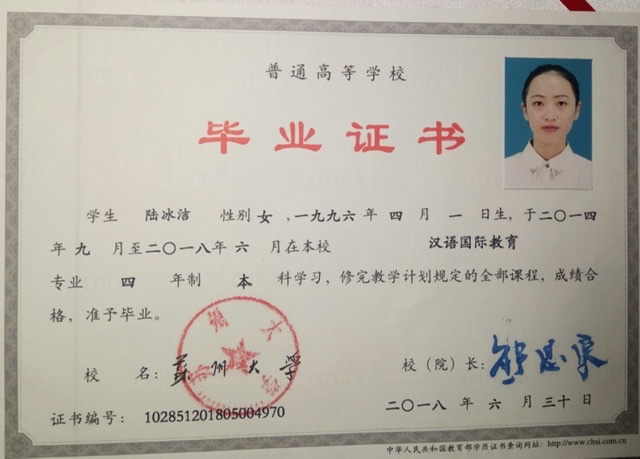 普通高等学校
毕业证书
学生 陆冰洁 性别 女，一九九六年 四 月 一 日生，于二〇一四
年 九 月至二〇一八年 六 月在本校 汉语国际教育
专业 四 年制 本 科学习，修完教学计划规定的全部课程，成绩合
格，准予毕业。
校 名：苏州大学 校（院）长：
证书编号： 102851201805004970 二〇一八 年 六 月 三十 日
中华人民共和国教育部学历证书查询网址：http://www.chsi.com.cn